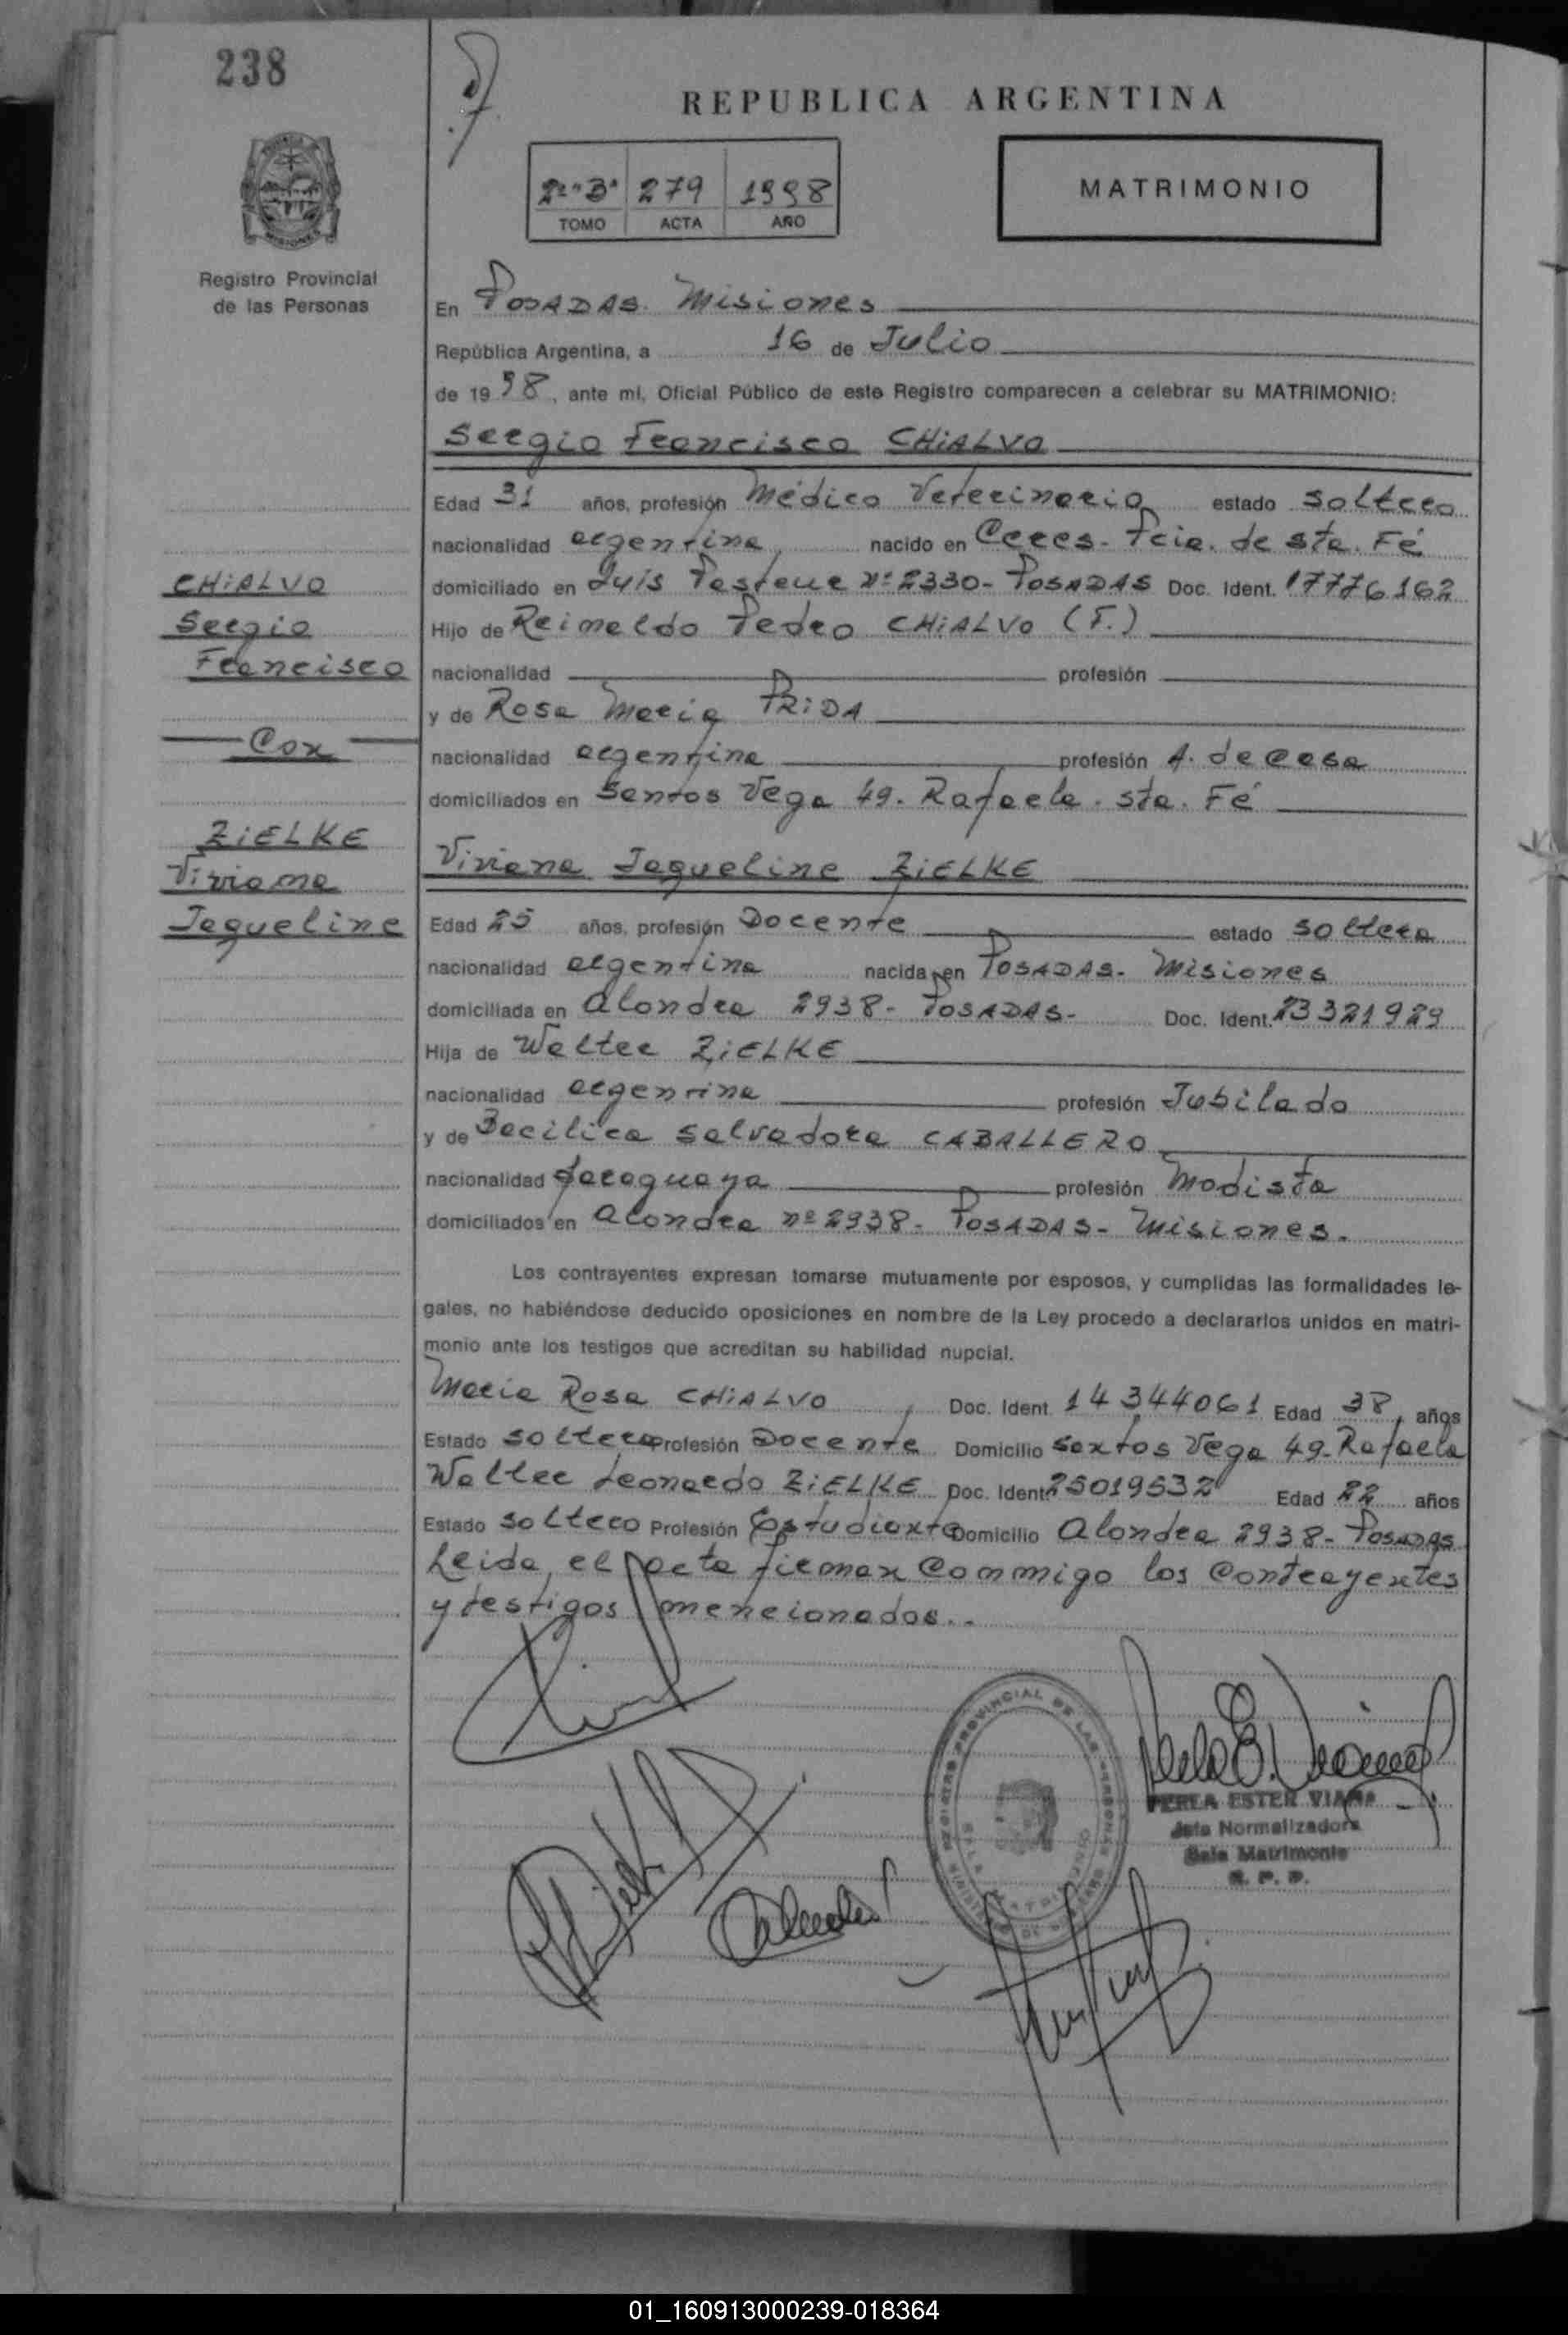 238
REPUBLICA ARGENTINA
2º "B" 279 1998
TOMO ACTA AÑO
MATRIMONIO
Registro Provincial
de las Personas
En POSADAS. Misiones
República Argentina, a 16 de Julio
de 1998, ante mi, Oficial Público de este Registro comparecen a celebrar su MATRIMONIO:
Sergio Francisco CHIALVO
Edad 31 años, profesión Médico Veterinario estado soltero
nacionalidad argentina nacido en Ceres- Pcia. de sta. Fé
domiciliado en Luís Pasteur nº 2330- POSADAS Doc. Ident. 17776162
Hijo de Reimaldo Pedro CHIALVO (F.)
nacionalidad profesión
y de Rosa Maria PRIDA
nacionalidad argentina profesión A. de Casa
domiciliados en Santos Vega 49. Rafaela. sta. Fé
CHIALVO
Sergio
Francisco
Con
ZIELKE
Viviana
Jaqueline
Viviana Jaqueline ZIELKE
Edad 25 años, profesión Docente estado soltera
nacionalidad argentina nacida en POSADAS- Misiones
domiciliada en Alondra 2938- POSADAS- Doc. Ident. 23321929
Hija de Walter ZIELKE
nacionalidad argentina profesión Jubilado
y de Bacilica Salvadora CABALLERO
nacionalidad paraguaya profesión Modista
domiciliados en Alondra nº 2938- POSADAS- Misiones.
Los contrayentes expresan tomarse mutuamente por esposos, y cumplidas las formalidades le-
gales, no habiéndose deducido oposiciones en nombre de la Ley procedo a declararlos unidos en matri-
monio ante los testigos que acreditan su habilidad nupcial.
Maria Rosa CHIALVO, Doc. Ident. 14344061 Edad 38, años
Estado soltera Profesión Docente Domicilio Santos Vega 49- Rafaela
Walter Leonardo ZIELKE Doc. Ident. 25019532 Edad 22 años
Estado soltero Profesión Estudiante Domicilio Alondra 2938- POSADAS
Leida el acta firman conmigo los contrayentes
y testigos mencionados..
REGISTRO PROVINCIAL DE LAS PERSONAS
PERLA ESTER VIANA
Jefa Normalizadora
Sala Matrimonio
R. P. P.
01_160913000239-018364